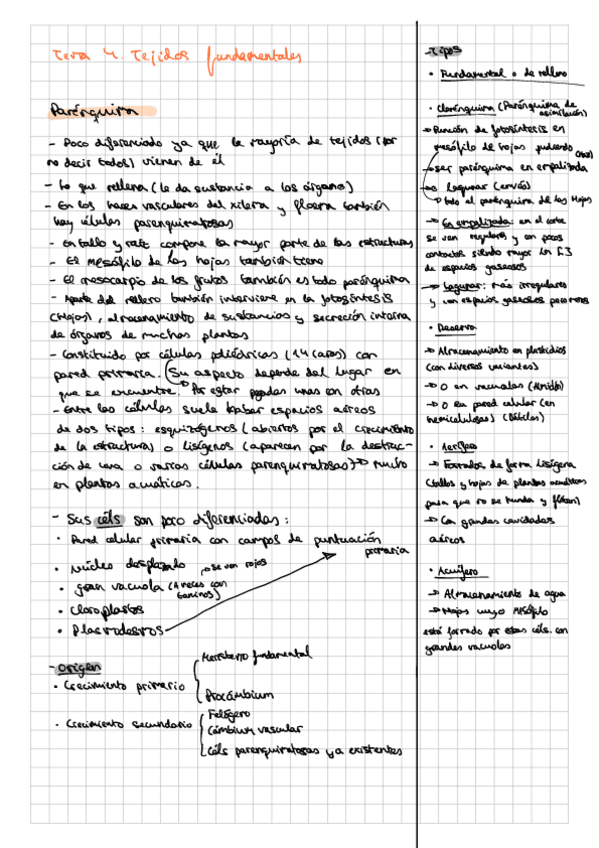 Tema 4. Tejidos fundamentales
Parénquima
- Poco diferenciado ya que la mayoría de tejidos (por
no decir todos) vienen de él
- Lo que rellena (le da sustancia a los órganos)
- En los haces vasculares del xilema y floema también
hay células parenquimatosas
- En tallo y raíz compone la mayor parte de las estructuras
- El mesófilo de las hojas también tiene
- El mesocarpio de los frutos también es todo parénquima
- Aparte del relleno también interviene en la fotosíntesis
(Hojas), almacenamiento de sustancias y secreción interna
de órganos de muchas plantas
- Constituido por células poliédricas (14 caras) con
pared primaria. Su aspecto depende del lugar en
que se encuentre. Por estar pegadas unas con otras
- Entre las células suele haber espacios aéreos
de dos tipos: esquizógenos (abiertos por el crecimiento
de la estructura) o lisígenos (aparecen por la destruc-
ción de una o varias células parenquimatosas) → mucho
en plantas acuáticas.
- Sus céls son poco diferenciadas:
• Pared celular primaria con campos de puntuación
primaria
• Núcleo desplazado → se ven rojos
• gran vacuola (A veces con
taninos)
• Cloroplastos
• Plasmodesmos
- Origen
• Crecimiento primario
Meristemo fundamental
Procámbium
• Crecimiento secundario
Felógeno
Cámbium vascular
Céls parenquimatosas ya existentes
- Tipos
• Fundamental o de relleno
• Clorénquima (Parénquima de
asimilación)
→ Función de fotosíntesis en
mesófilo de hojas pudiendo
→ ser parénquima en empalizada
→ o lagunar (envés)
→ todo el parénquima de las Hojas
→ En empalizada: en el corte
se ven regulares y con pocos
contactos siendo mayor la
de espacios gaseosos
→ Lagunar: más irregulares
y con espacios gaseosos
• Reserva
→ Almacenamiento en plastidios
(con diversas variantes)
→ O en vacuolas (Almidón)
→ O en pared celular (en
hemicelulosas) (Dátiles)
• Aerífero
→ Formados de forma lisígena
(tallos y hojas de plantas acuáticas
para que no se hunda y floten)
→ Con grandes cavidades
aéreas
• Acuífero
→ Almacenamiento de agua
→ Hojas cuyo mesófilo
está formado por estas céls. con
grandes vacuolas